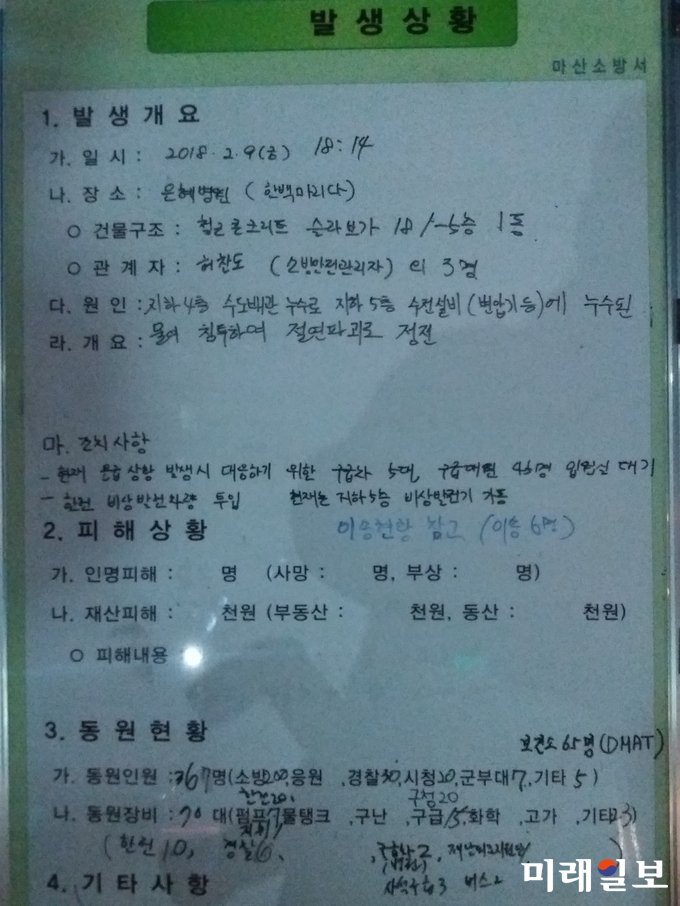 발생상황
마산소방서
1. 발생개요
가. 일시 : 2018. 2. 9(금) 18:14
나. 장소 : 은혜병원 (한백마리나)
○ 건물구조 : 철근콘크리트 슬라브가 18/-5층 1동
○ 관계자 : 허찬도 (소방안전관리자) 외 3명
다. 원인 : 지하4층 수도배관 누수로 지하5층 수전설비(변압기등)에 누수된
라. 개요 : 물이 침투하여 절연파괴로 정전
마. 조치사항
- 현재 응급상황 발생시 대응하기 위한 구급차 5대, 구급대원 46명 입원실 대기
- 한전 비상발전차량 투입 현재는 지하5층 비상발전기 가동
2. 피해상황 이송현황 참고 (이송 6명)
가. 인명피해 : 명 (사망 : 명, 부상 : 명)
나. 재산피해 : 천원 (부동산 : 천원, 동산 : 천원)
○ 피해내용
3. 동원현황
보건소 65명(DMAT)
가. 동원인원 : 367명(소방200,응원 ,경찰30,시청20,군부대7,기타5)
한전20, 구청20
나. 동원장비 : 70대(펌프7물탱크 ,구난 ,구급15,화학 ,고가 ,기타23)
(한전10, 경찰6,
4. 기타사항 버스2
미래일보